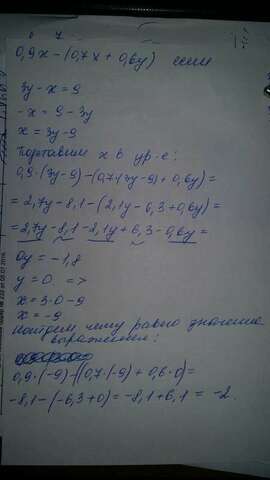 0,9x-(0,7x+0,6y) если
3y-x=9
-x=9-3y
x=3y-9
Подставим x в ур-е:
0,9·(3y-9)-(0,7(3y-9)+0,6y)=
=2,7y-8,1-(2,1y-6,3+0,6y)=
=2,7y-8,1-2,1y+6,3-0,6y=
0y=-1,8
y=0 =>
x=3·0-9
x=-9
Найдем чему равно значение
выражения:
0,9·(-9)-(0,7·(-9)+0,6·0)=
-8,1-(-6,3+0)=-8,1+6,1=-2.